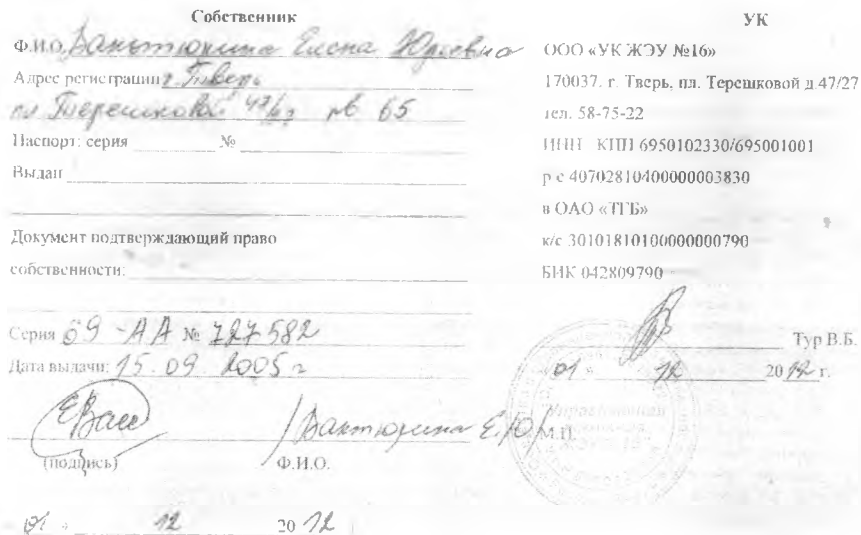 Собственник
Ф.И.О. Елена Юрьевна
Адрес регистрации г. Тверь
пл Терешковой 47/27 кв 65
Паспорт: серия №
Выдан
Документ подтверждающий право
собственности:
Серия 69-АА № 727582
Дата выдачи: 15.09.2005 г
Е.Ю.
(подпись) Ф.И.О.
01 12 2012
УК
ООО «УК ЖЭУ №16»
170037. г. Тверь, пл. Терешковой д.47/27
тел. 58-75-22
ИНН КПП 6950102330/695001001
р с 40702810400000003830
в ОАО «ТГБ»
к/с 30101810100000000790
БИК 042809790
Тур В.Б.
01 12 2012 г.
М.П.